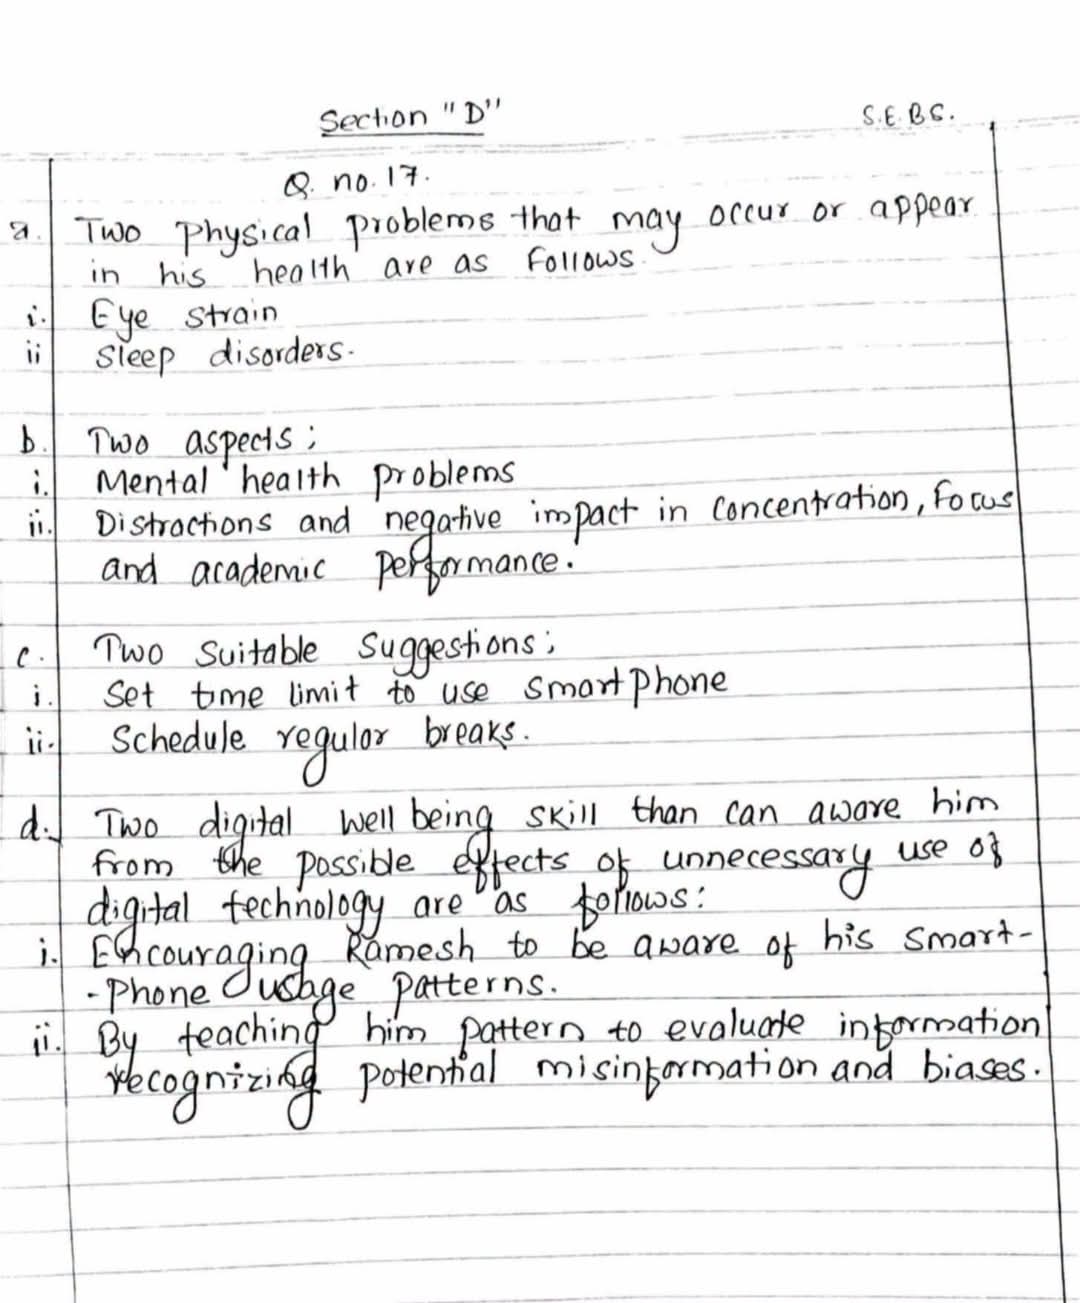 Section "D"
S.E.BS.
Q. no. 17.
a. Two Physical problems that may occur or appear
in his health are as follows.
i. Eye strain
ii Sleep disorders.
b. Two aspects;
i. Mental health problems
ii. Distractions and negative impact in concentration, focus
and academic performance.
c. Two suitable suggestions;
i. Set time limit to use smartphone
ii. Schedule regular breaks.
d. Two digital well being skill than can aware him
from the possible effects of unnecessary use of
digital technology are as follows:
i. Encouraging Ramesh to be aware of his smart-
-Phone usage patterns.
ii. By teaching him pattern to evaluate information
recognizing potential misinformation and biases.